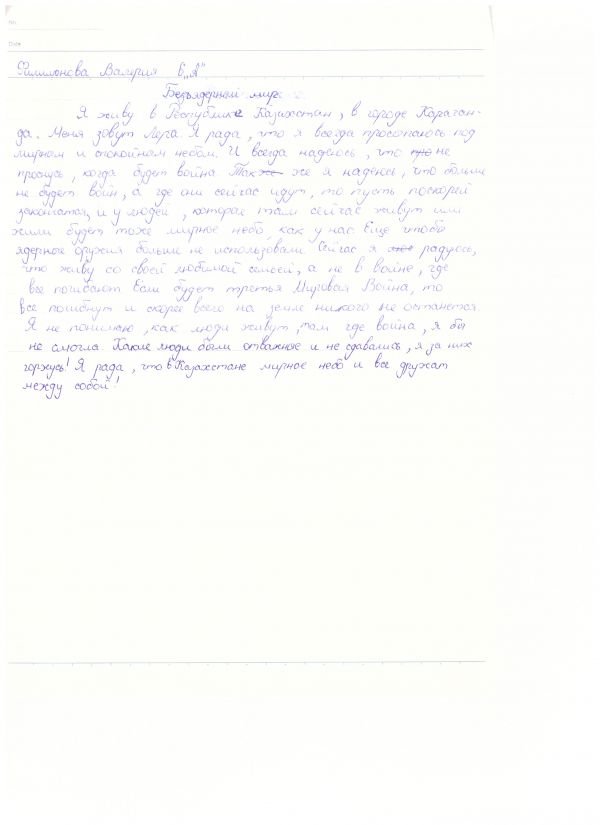 No.
Date
Филимонова Валерия 6 „А"
Безъядерный мир
Я живу в Республике Казахстан, в городе Караган-
да. Меня зовут Лера. Я рада, что я всегда просыпаюсь под
мирным и спокойным небом. И всегда надеюсь, что не
проснусь, когда будет война. Так же я надеюсь, что больше
не будет войн, а где они сейчас идут, то пусть поскорей
закончатся, и у людей, которые там сейчас живут или
жили будет тоже мирное небо, как у нас. Еще чтобы
ядерное оружия больше не использовали. Сейчас я радуюсь,
что живу со своей любимой семьёй, а не в войне, где
все погибают. Если будет третья Мировая Война, то
все погибнут и скорее всего на земле никого не останется.
Я не понимаю, как люди живут, там где война, я бы
не смогла. Какие люди были отважные и не сдавались, я за них
горжусь! Я рада, что в Казахстане мирное небо и все дружат
между собой!